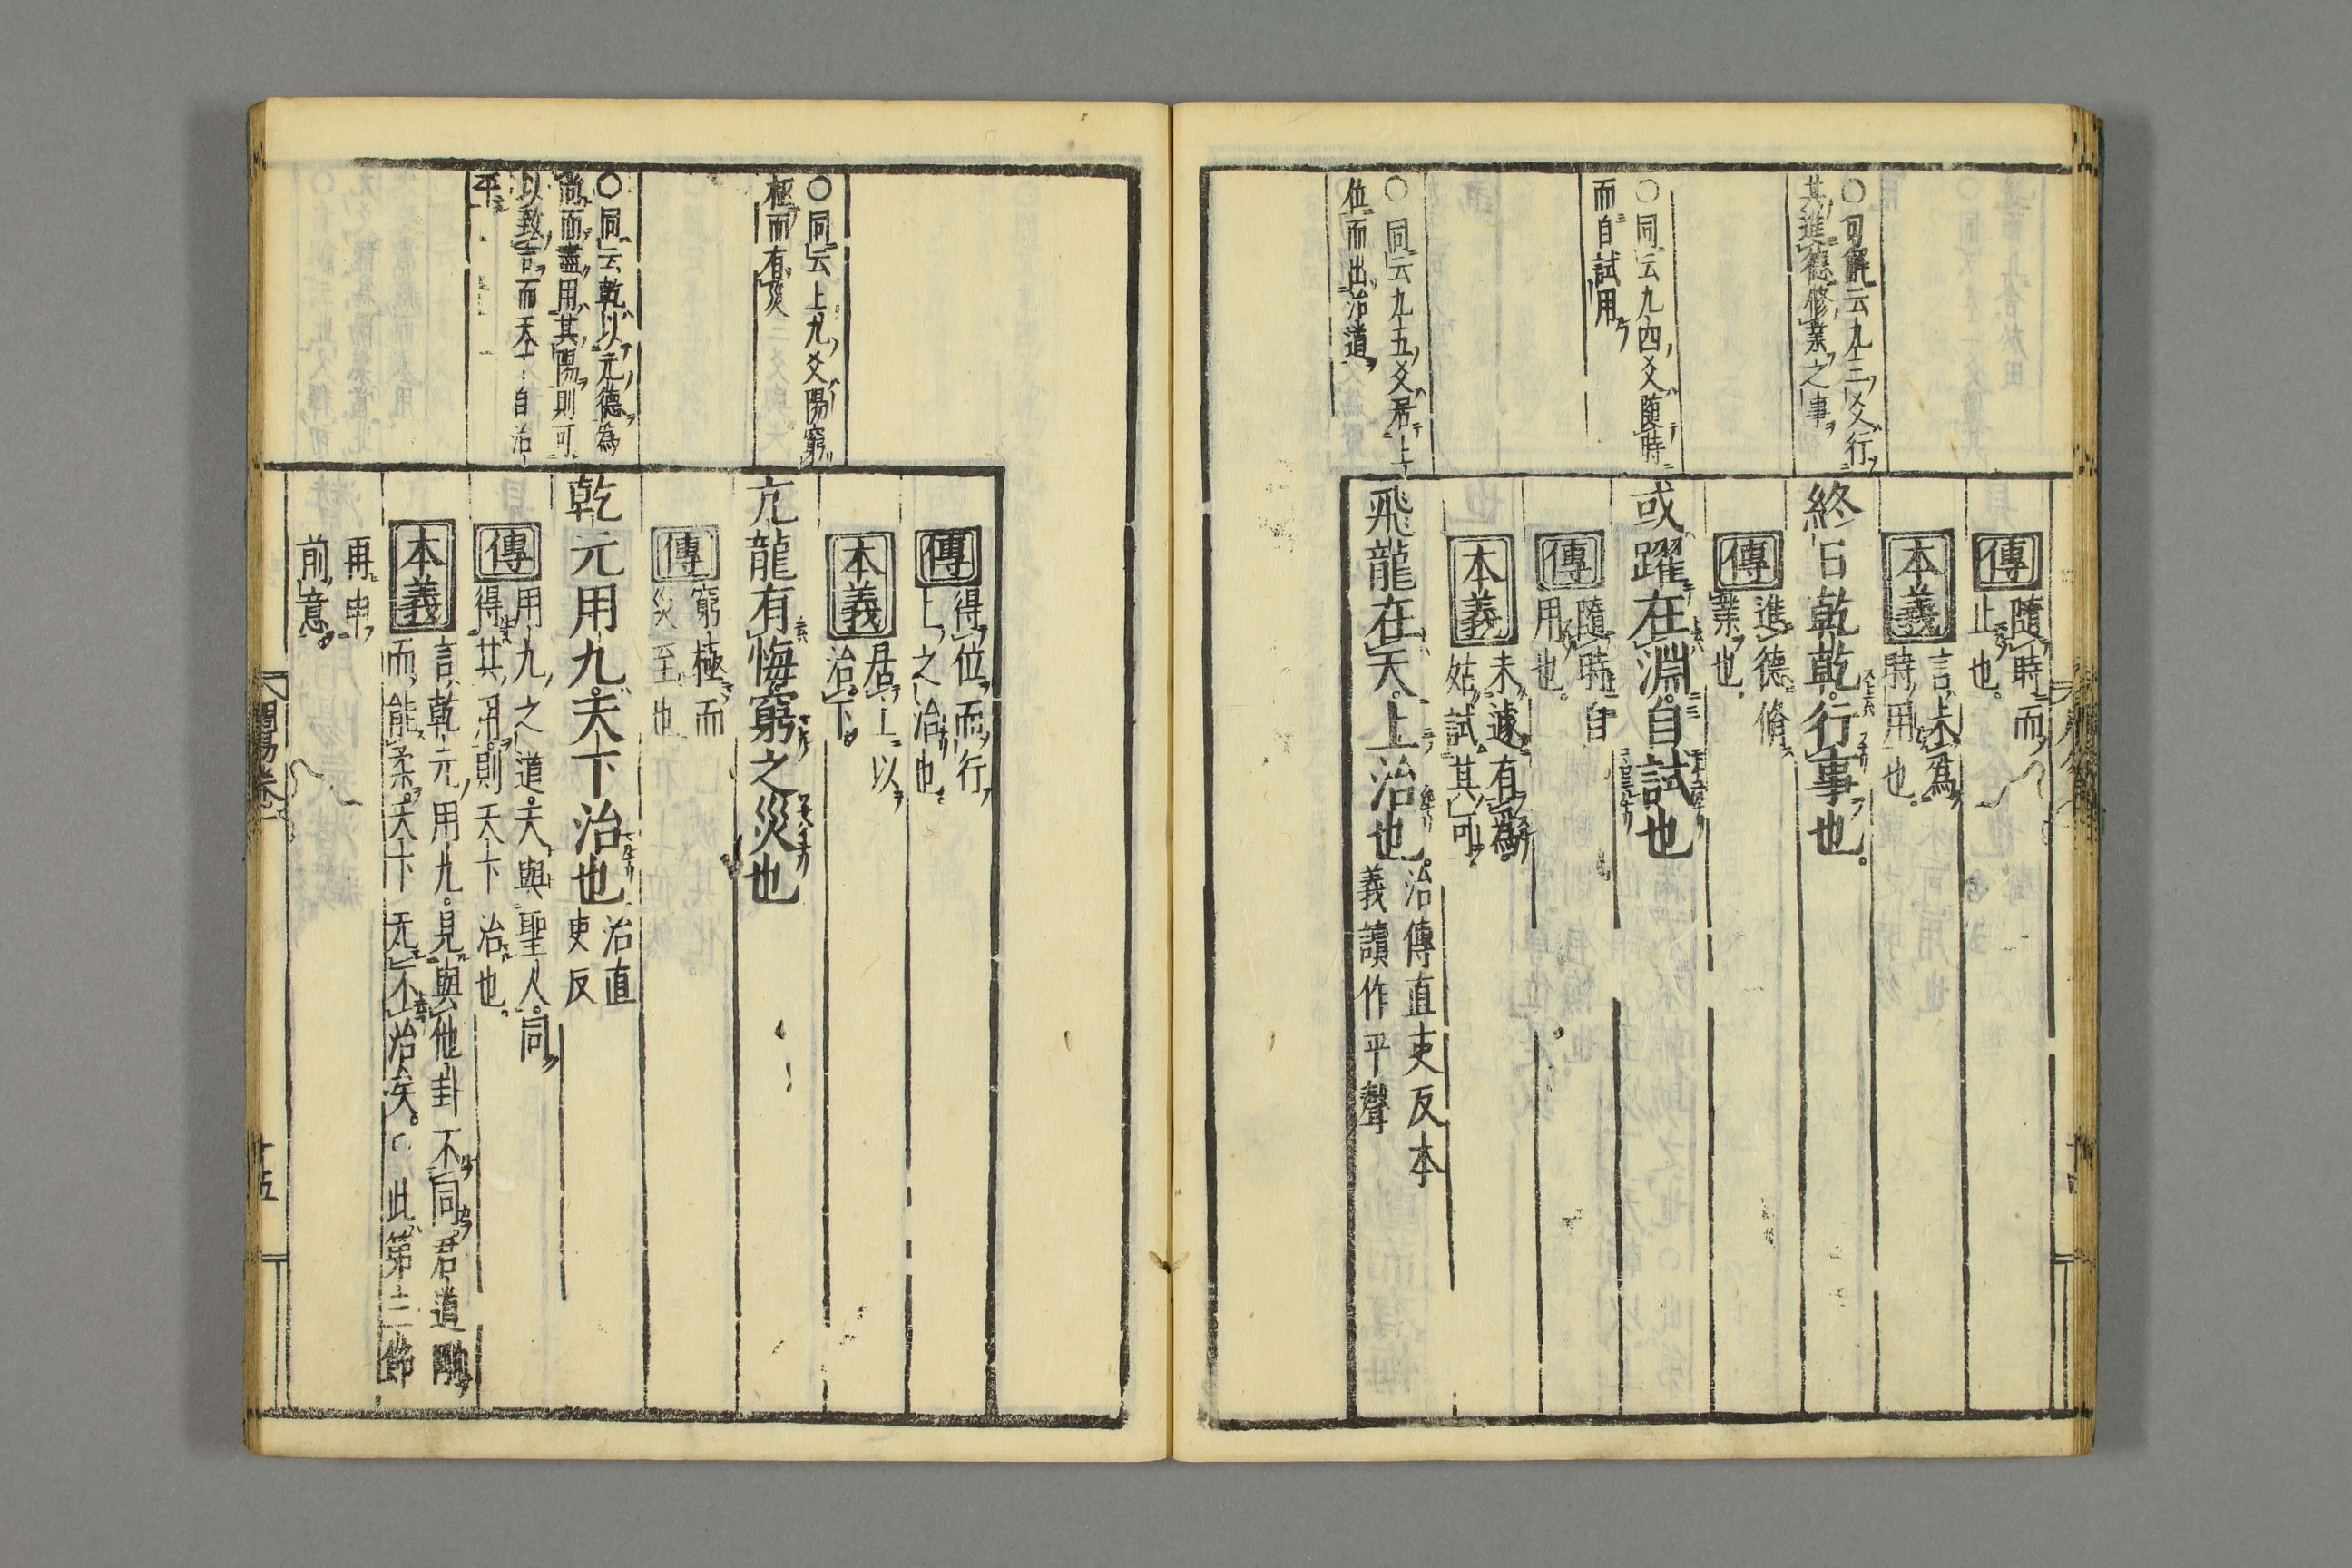 ○同解云九三爻行
其進德修業之事
○同云九四爻隨時
而自試用
○同云九五爻居上
位而出治道
傳
隨時而
止也
本義
言未為
時用也
終日乾乾行事也
傳
進德脩
業也
或躍在淵自試也
傳
隨時自
用也
本義
未遽有為
姑試其可
飛龍在天上治也
治傳直吏反本
義讀作平聲
○同云上九爻陽窮
極而有災
○同云乾以元德為
尚而盡用其陽則可
以致言而天下自治
平
傳
得位而行
上之治也
本義
居上以
治下
亢龍有悔窮之災也
傳
窮極而
災至也
乾元用九天下治也
治直
吏反
傳
用九之道天與聖人同
得其用則天下治也
本義
言乾元用九見與他卦不同君道剛
而能柔天下无不治矣 此第三節
再申
前意
十五